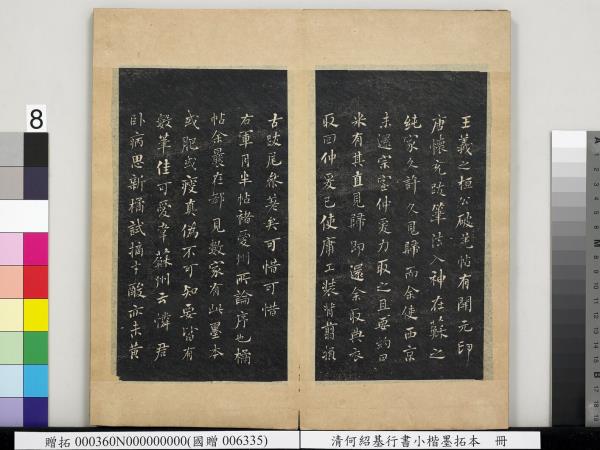 王羲之桓公破羌帖有開元印
唐懷充跋筆法入神在蘇之
純家久許久見歸而余使西京
未還宗室仲爰力取之且要約曰
米有其直見歸即還余遂典衣
取回仲爰已使庸工裝背剪損
古跋尾參差矣可惜可惜
右軍月半帖諸憂州所論序也橘
帖余最在都見數家有此墨本
或肥或瘦真偽不可知要皆有
殺筆佳可愛韋蘇州云憐君
卧病思新橘試摘才酸亦未黃
8
贈拓 000360N000000000(國贈 006335)
清何紹基行書小楷墨拓本 冊